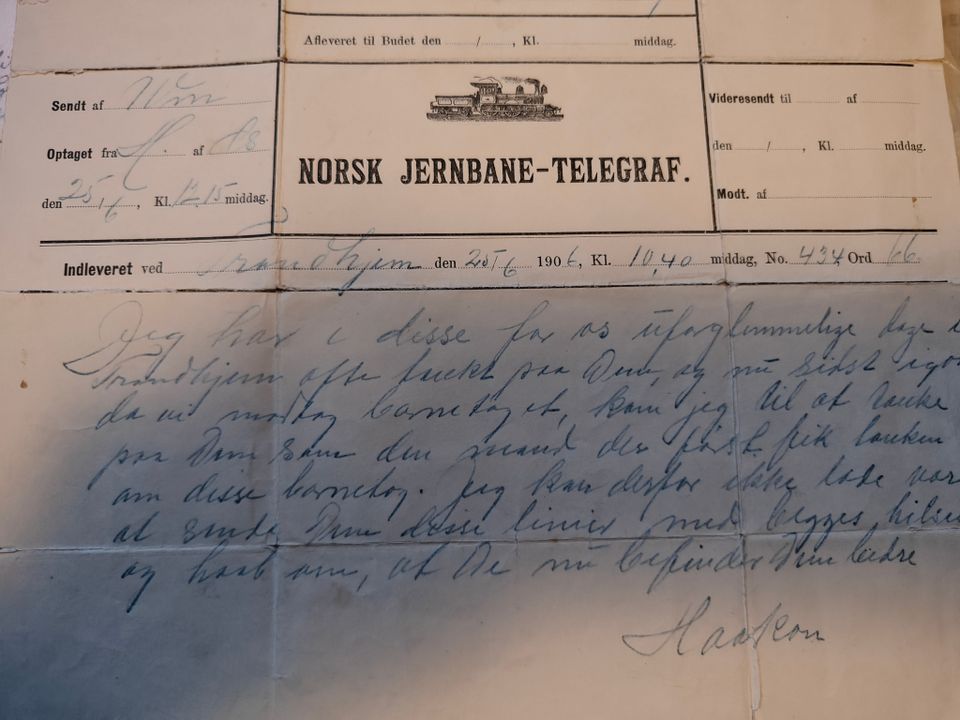 Afleveret til Budet den / , Kl. middag.
Sendt af
Optaget fra H. af
den 25/6, Kl. 12.15 middag.
NORSK JERNBANE-TELEGRAF.
Videresendt til af
den / , Kl. middag.
Modt. af
Indleveret ved Trondhjem den 25/6 1906, Kl. 10,40 middag, No. 434 Ord 66
Jeg har i disse for os uforglemmelige dage i
Trondhjem ofte tænkt paa Dem, og nu sidst igaar
da vi modtog barnetoget, kom jeg til at tænke
paa Dem som den mand der først fik tanken
om disse barnetog. Jeg kan derfor ikke lade være
at sende Dem disse linier med begges hilsen
og haab om, at De nu befinder Dem bedre
Haakon